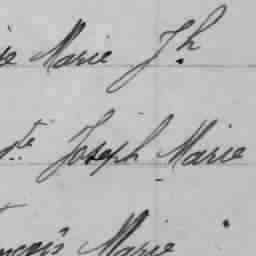 ie Marie Jh
te Joseph Marie
ncois Marie